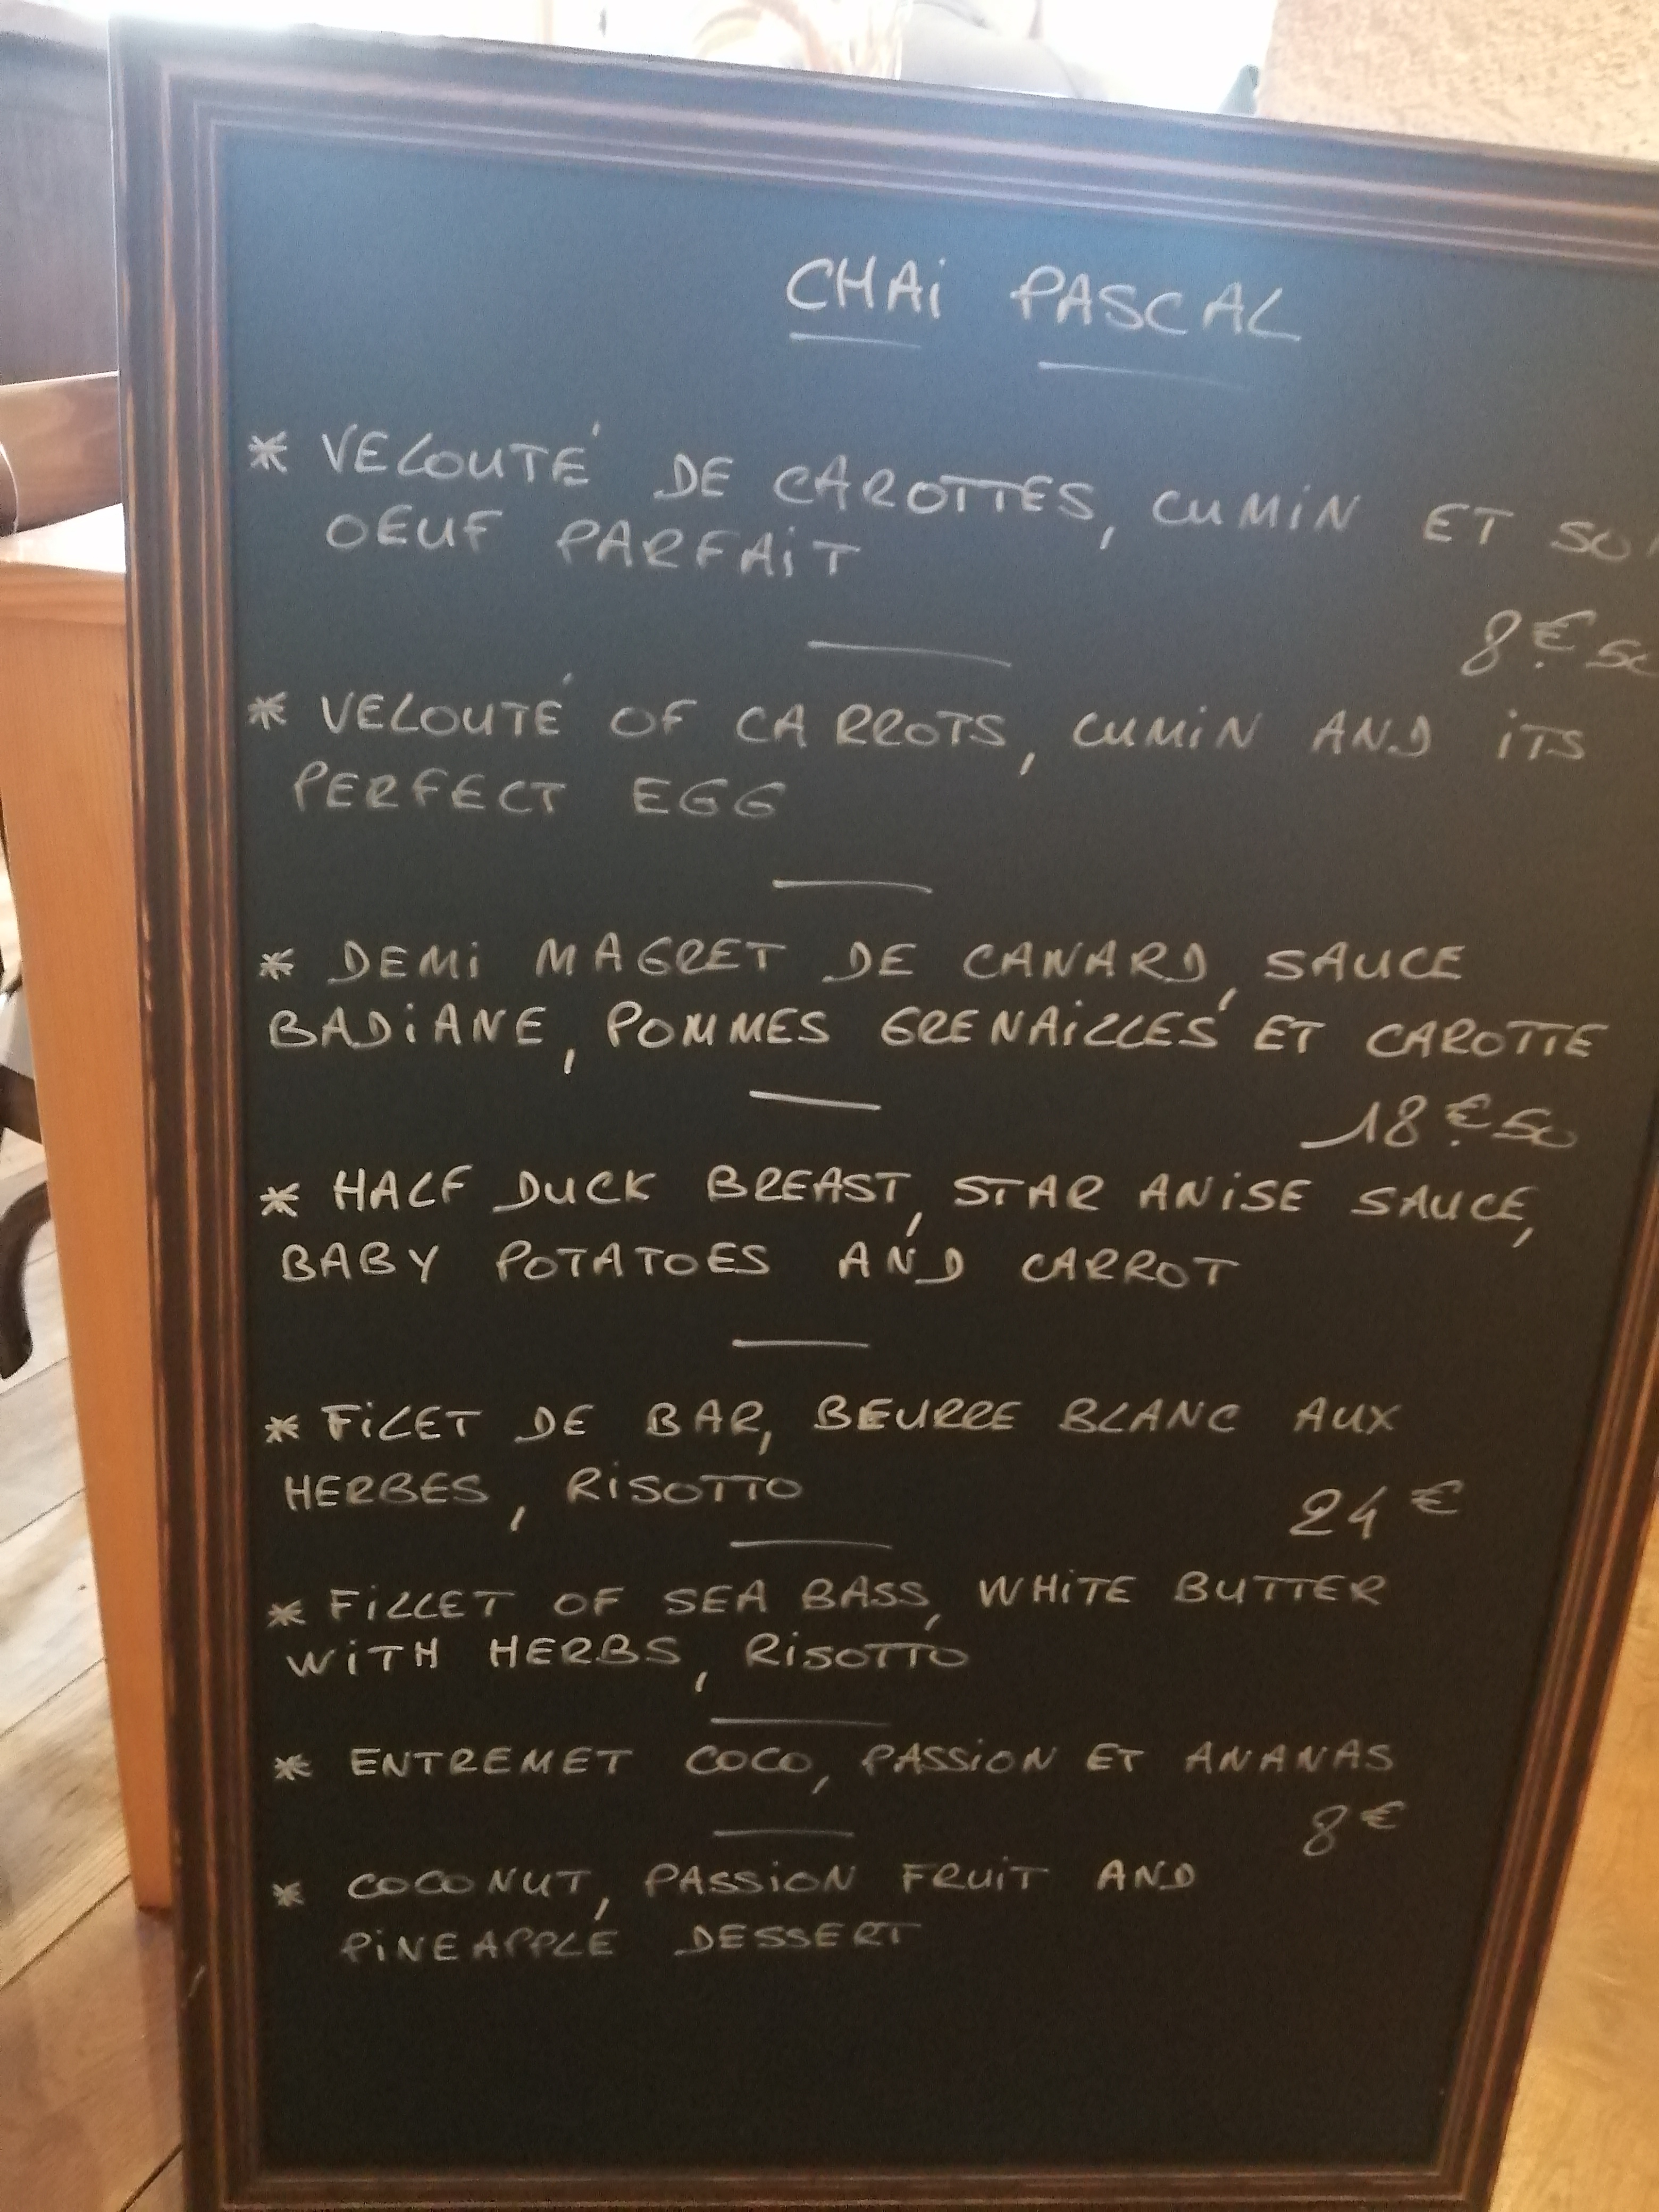 CHAi PASCAL
* VELOUTÉ DE CAROTTES, CUMiN ET SON
OEUF PARFAiT
8€50
* VELOUTÉ OF CARROTS, CUMiN AND iTS
PERFECT EGG
* DEMi MAGRET DE CANARD, SAUCE
BADiANE, POMMES GRENAiLLES ET CAROTTE
18€50
* HALF DUCK BREAST, STAR ANiSE SAUCE,
BABY POTATOES AND CARROT
* FiLET DE BAR, BEURRE BLANC AUX
HERBES, RiSOTTO
24€
* FiLLET OF SEA BASS, WHiTE BUTTER
WiTH HERBS, RiSOTTO
* ENTREMET COCO, PASSiON ET ANANAS
8€
* COCONUT, PASSiON FRUiT AND
PiNEAPPLE DESSERT